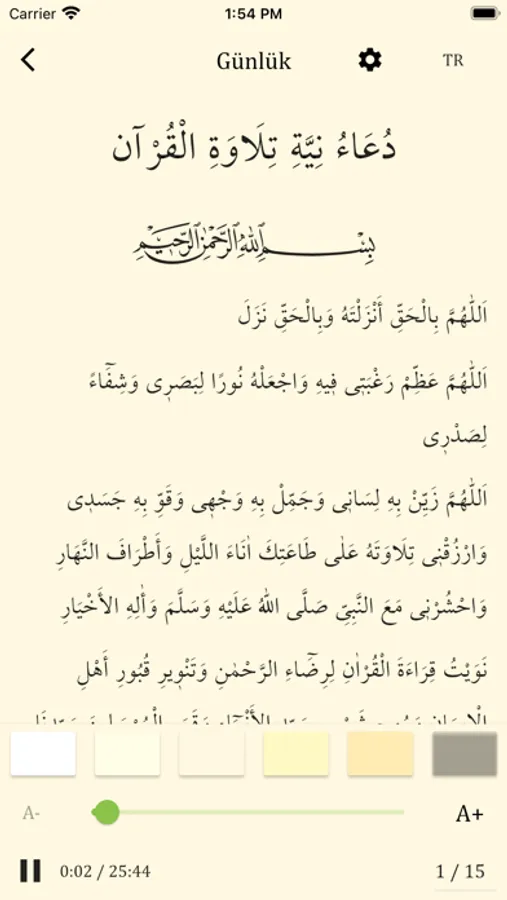 Carrier 1:54 PM
Günlük TR
دُعَاءُ نِيَّةِ تِلَاوَةِ الْقُرْآن
بِسْمِ اللهِ الرَّحْمٰنِ الرَّحِيمِ
اَللّٰهُمَّ بِالْحَقِّ أَنْزَلْتَهُ وَبِالْحَقِّ نَزَلَ
اَللّٰهُمَّ عَظِّمْ رَغْبَتِى فِيهِ وَاجْعَلْهُ نُورًا لِبَصَرِى وَشِفَٓاءً
لِصَدْرِى
اَللّٰهُمَّ زَيِّنْ بِهِ لِسَانِى وَجَمِّلْ بِهِ وَجْهِى وَقَوِّ بِهِ جَسَدِى
وَارْزُقْنِى تِلَاوَتَهُ عَلٰى طَاعَتِكَ اٰنَاءَ اللَّيْلِ وَأَطْرَافَ النَّهَارِ
وَاحْشُرْنِى مَعَ النَّبِيِّ صَلَّى اللهُ عَلَيْهِ وَسَلَّمَ وَأٰلِهِ الأَخْيَارِ
نَوَيْتُ قِرَاءَةَ الْقُرْاٰنِ لِرِضَٓاءِ الرَّحْمٰنِ وَتَنْوِيرِ قُبُورِ أَهْلِ
A- A+
0:02 / 25:44 1 / 15